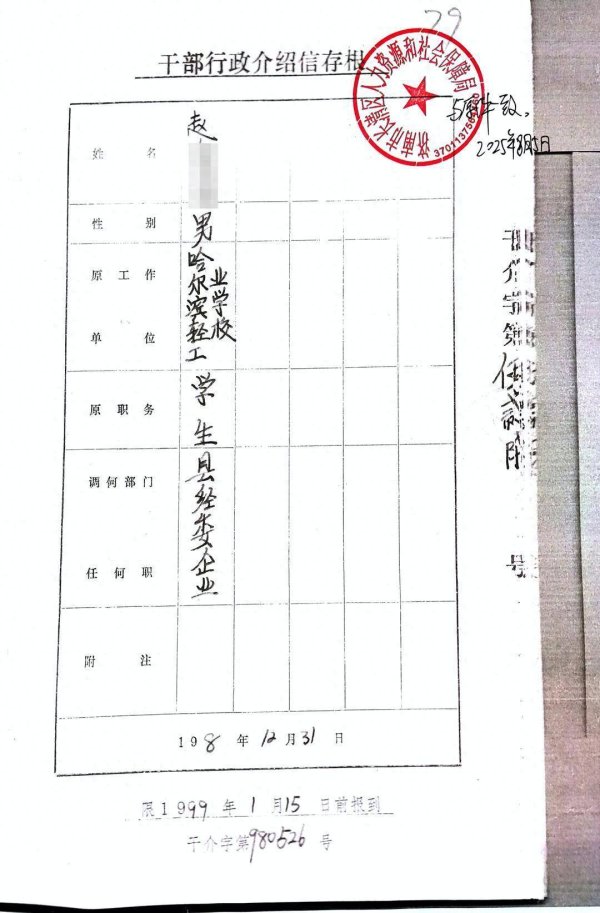 79
干部行政介绍信存根
济南市长清区人力资源和社会保障局
3701137568
与原件一致。
2025年8月5日
姓名
赵
性别
男
原工作单位
哈尔滨轻工业学校
原职务
学生
调何部门任何职
县经委企业
附注
198年12月31日
限1999年1月15日前报到
干介字第980526号
干介字第伍贰陆号